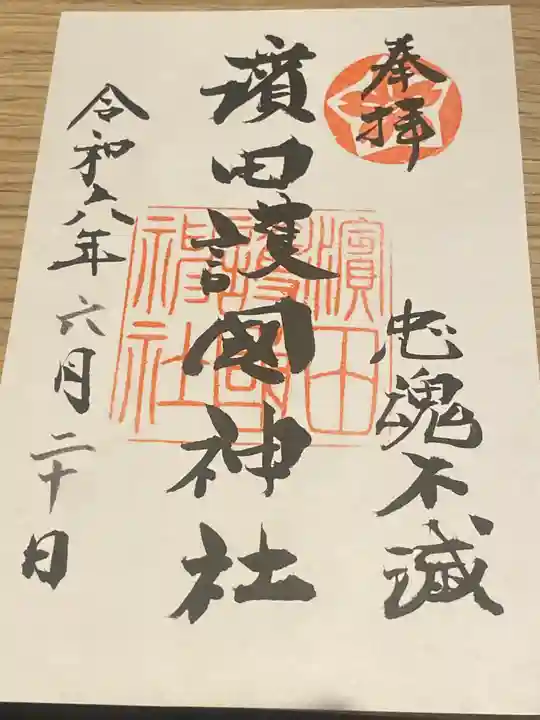 奉拝
忠魂不滅
濵田護國神社
濱田
護國
神社
令和六年六月二十日